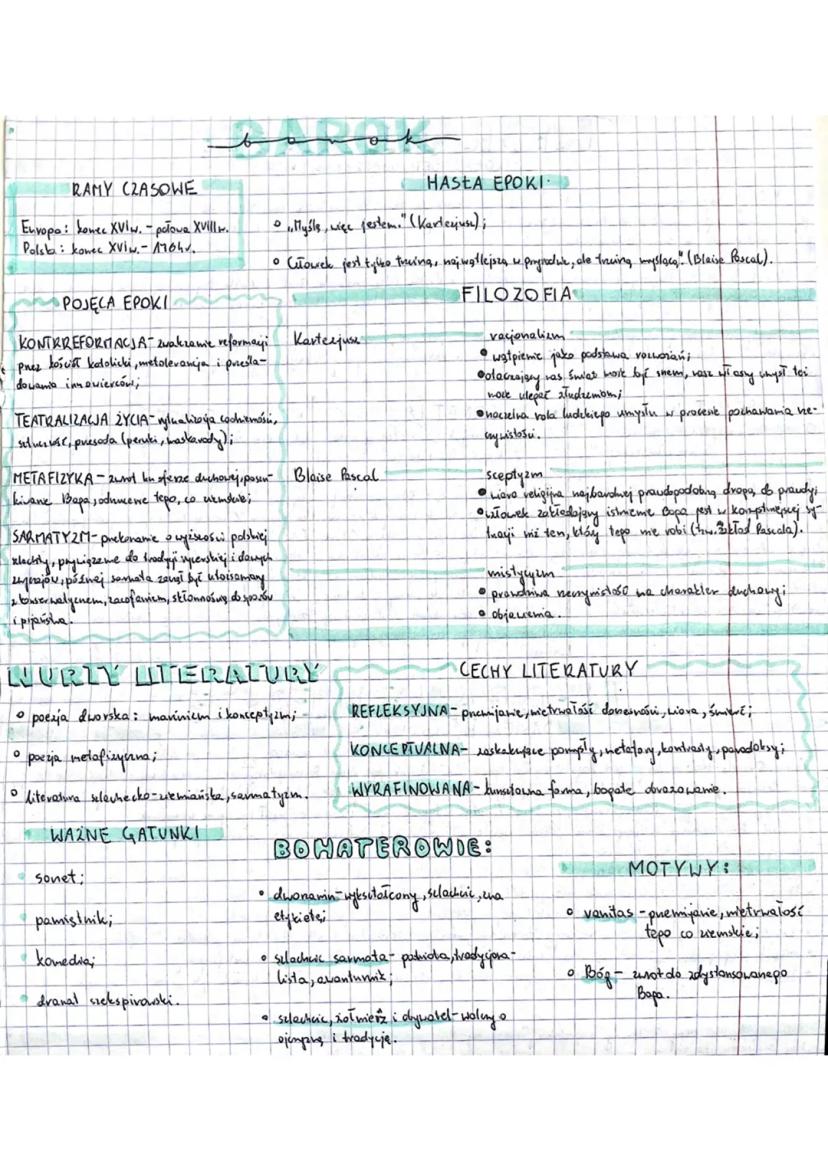 BAROK
barok
RAMY CZASOWE
Europa: koniec XVI w. - połowa XVIII w.
Polska: koniec XVI w. - 1764 r.
HASŁA EPOKI
"Myślę, więc jestem." (Kartezjusz);
Człowiek jest tylko trzciną, najwątlejszą w przyrodzie, ale trzciną myślącą". (Blaise Pascal).
POJĘCA EPOKI
KONTRREFORMACJA - zwalczanie reformacji
przez kościół katolicki, nietolerancja i prześla-
dowania innowierców;
TEATRALIZACJA ŻYCIA - rytualizacja codzienności,
sztuczność, przesada (peruki, maskarady);
METAFIZYKA - zwrot ku sferze duchowej, poszu-
kiwanie Boga, odrzucenie tego, co ziemskie;
SARMATYZM - przekonanie o wyższości polskiej
szlachty, przywiązanie do tradycji rycerskiej i dawnych
zwyczajów, później sarmata zaczął być utożsamiany
z konserwatyzmem, zacofaniem, skłonnością do sporów
i pijaństwa.
FILOZOFIA
Kartezjusz
racjonalizm
wątpienie jako podstawa rozważań;
otaczający nas świat może być snem, nasz własny umysł też
może ulegać złudzeniom;
naczelna rola ludzkiego umysłu w procesie poznawania rze-
czywistości.
Blaise Pascal
sceptyzm
wiara religijna najbardziej prawdopodobną drogą do prawdy;
człowiek zakładający istnienie Boga jest w korzystniejszej sy-
tuacji niż ten, który tego nie robi (tzw. Zakład Pascala).
mistycyzm
prawdziwa rzeczywistość ma charakter duchowy;
objawienia.
NURTY LITERATURY
poezja dworska: marinizm i konceptyzm;
poezja metafizyczna;
literatura szlachecko-ziemiańska, sarmatyzm.
CECHY LITERATURY
REFLEKSYJNA - przemijanie, nietrwałość doczesności, wiara, śmierć;
KONCEPTUALNA - zaskakujące pomysły, metafory, kontrasty, paradoksy;
WYRAFINOWANA - kunsztowna forma, bogate obrazowanie.
WAŻNE GATUNKI
sonet;
pamiętnik;
komedia;
dramat szekspirowski.
BOHATEROWIE:
dworzanin - wykształcony, szlachcic, zna
etykietę;
szlachcic sarmata - patriota, tradycjona-
lista, awanturnik;
szlachcic, żołnierz i obywatel - walczy o
ojczyznę i tradycję.
MOTYWY:
vanitas - przemijanie, nietrwałość
tego co ziemskie;
Bóg - zwrot do zdystansowanego
Boga.